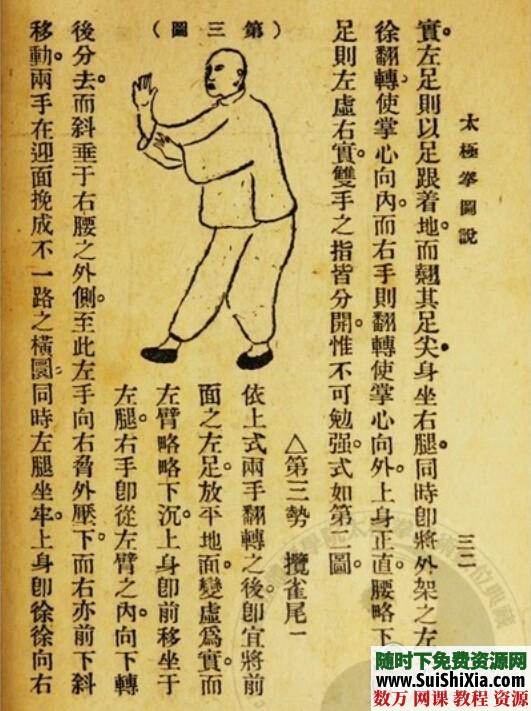 太極拳圖說
三二
實。左足則以足跟着地。而翹其足尖。身坐右腿。同時卽將外架之左
徐翻轉。使掌心向內。而右手則翻轉使掌心向外。上身正直。腰略下
足則左虛右實。雙手之指皆分開。惟不可勉强。式如第二圖。
△第三勢 攬雀尾一
依上式兩手翻轉之後。卽宜將前
面之左足。放平地面。變虛爲實。而
左臂略略下沉。上身卽前移坐于
左腿。右手卽從左臂之內。向下轉
(第三圖)
後分去。而斜垂于右腰之外側。至此左手向右脅外壓下。而右亦前下斜
移動。兩手在迎面挽成不一路之橫圜。同時左腿坐牢。上身卽徐徐向右
随时下免费资源网
www.SuiShiXia.com
数万 网课 教程 资源